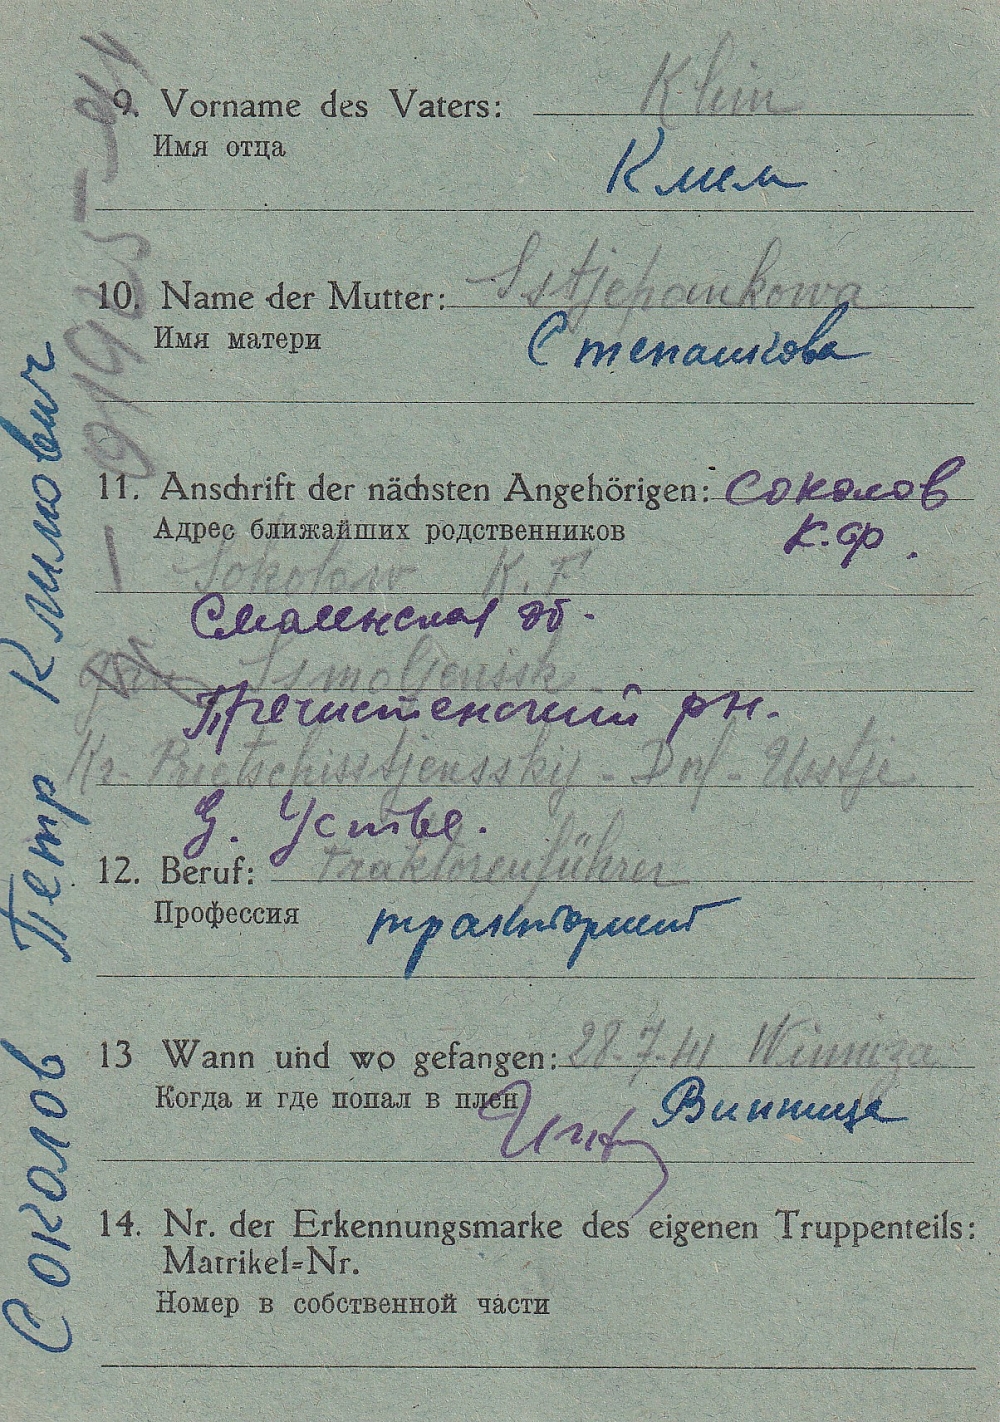 9. Vorname des Vaters: Klim
Имя отца
Клим
10. Name der Mutter: Sstjepankowa
Имя матери
Степанкова
11. Anschrift der nächsten Angehörigen: Соколов
Адрес ближайших родственников К.Ф.
Sokolow K. F.
Смаленская об.
Ssmoljenssk
Пречистенский рн.
Kr. Pretschisstjensskij - Dorf - Usstje
д. Устье.
12. Beruf: Traktorenführer
Профессия
тракторист
13 Wann und wo gefangen: 28.7.41 Winniza
Когда и где попал в плен Винница
14. Nr. der Erkennungsmarke des eigenen Truppenteils:
Matrikel=Nr.
Номер в собственной части
Соколов Петр Климович